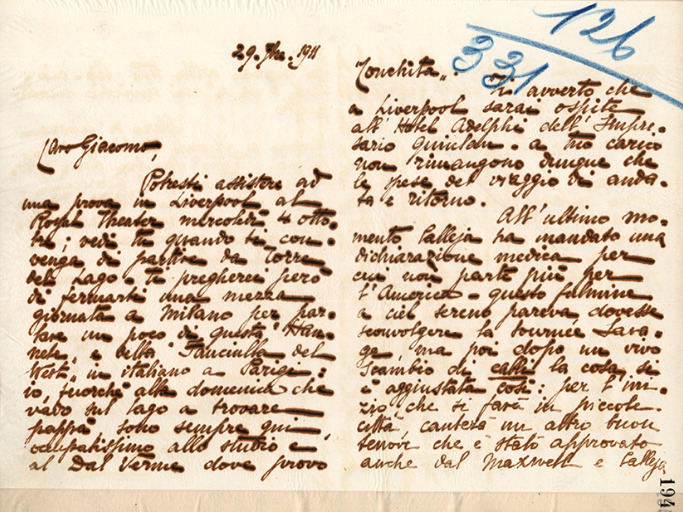 29. 7bre. 1911
Caro Giacomo,
Potresti assistere ad
una prova in Liverpool al
Royal Theater mercoledì 4 otto-
bre; vedi tu quando ti con-
venga di partire da Torre
del Lago - ti pregherei però
di fermarti una mezza
giornata a Milano per par-
lare un poco di questa "Han-
nele" e della "Fanciulla del
West" in italiano a Parigi:
io, fuorchè alla domenica che
vado sul lago a trovare
pappà sono sempre qui,
occupatissimo allo studio e
al Dal Verme dove provo
126
331
Conchita".
Ti avverto che
a Liverpool sarai ospite
all'Hotel Adelphi dell'Impre-
sario Quinlan - a tuo carico
non rimangono dunque che
le spese del viaggio di anda-
ta e ritorno.
All'ultimo mo-
mento Calleja ha mandato una
dichiarazione medica per
cui non parte più per
l'America - questo fulmine
a ciel sereno pareva dovesse
sconvolgere la tournée Sava-
ge, ma poi dopo un vivo
scambio di la cosa si
è aggiustata così: per l'ini-
zio che si farà in piccole
città, canterà un altro buon
tenore che è stato approvato
anche dal Maxwell e Calleja
194